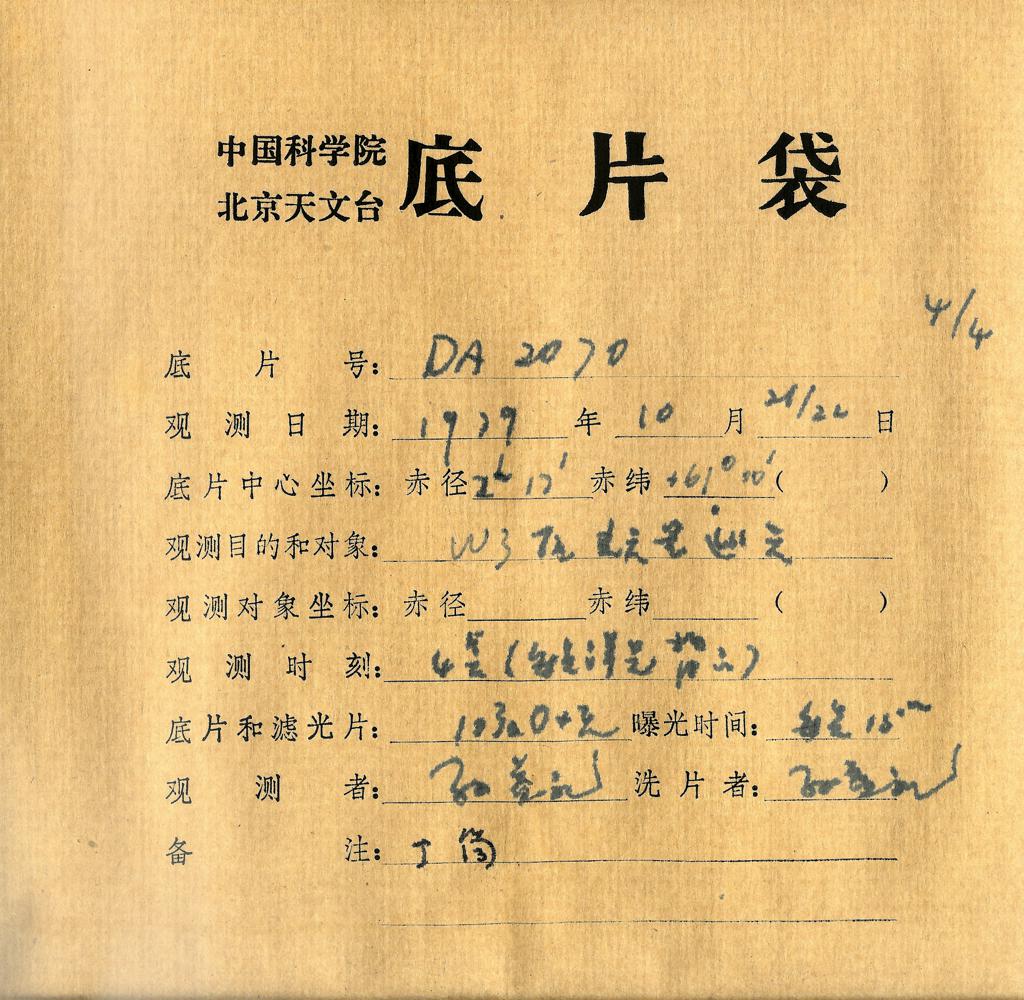 中国科学院
北京天文台
底片袋
4/4
底片号: DA 2070
观测日期: 1979 年 10 月 21/22 日
底片中心坐标: 赤径 2h 17' 赤纬 +61° 00' ( )
观测目的和对象: W3
观测对象坐标: 赤径 赤纬 ( )
观测时刻: 4
底片和滤光片: 103aO+无 曝光时间: 每 15m
观测者: 孙 洗片者: 孙
备注: